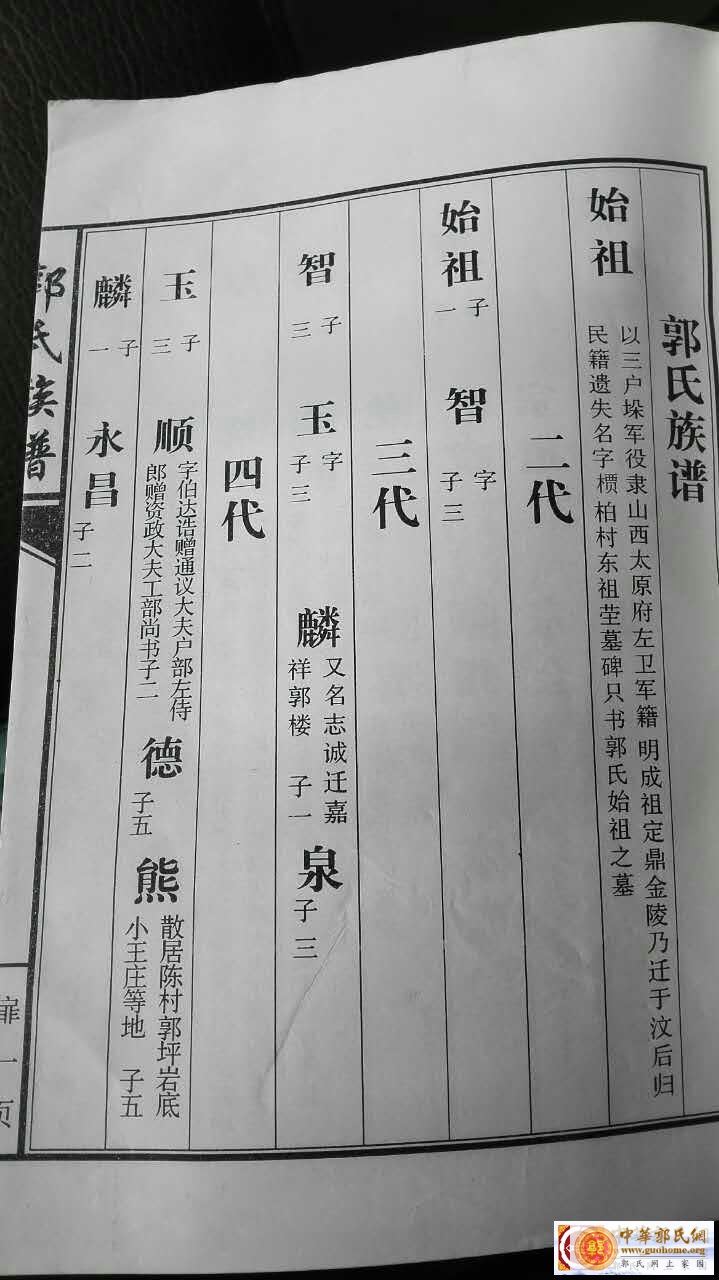 郭氏族谱
始祖
以三户垛军役隶山西太原府左卫军籍 明成祖定鼎金陵乃迁于汶后归
民籍遗失名字槚柏村东祖茔墓碑只书郭氏始祖之墓
二代
始祖 子一 智 字 子三
三代
智 子三 玉 字 子三 麟 又名志诚迁嘉祥郭楼 子一 泉 子三
四代
玉 子三 顺 字伯达诰赠通议大夫户部左侍郎赠资政大夫工部尚书子二 德 子五 熊 散居陈村郭坪岩底小王庄等地 子五
麟 子一 永昌 子二
郭氏族谱
扉一页
中華郭氏網
www.guohome.org
郭氏网上家园